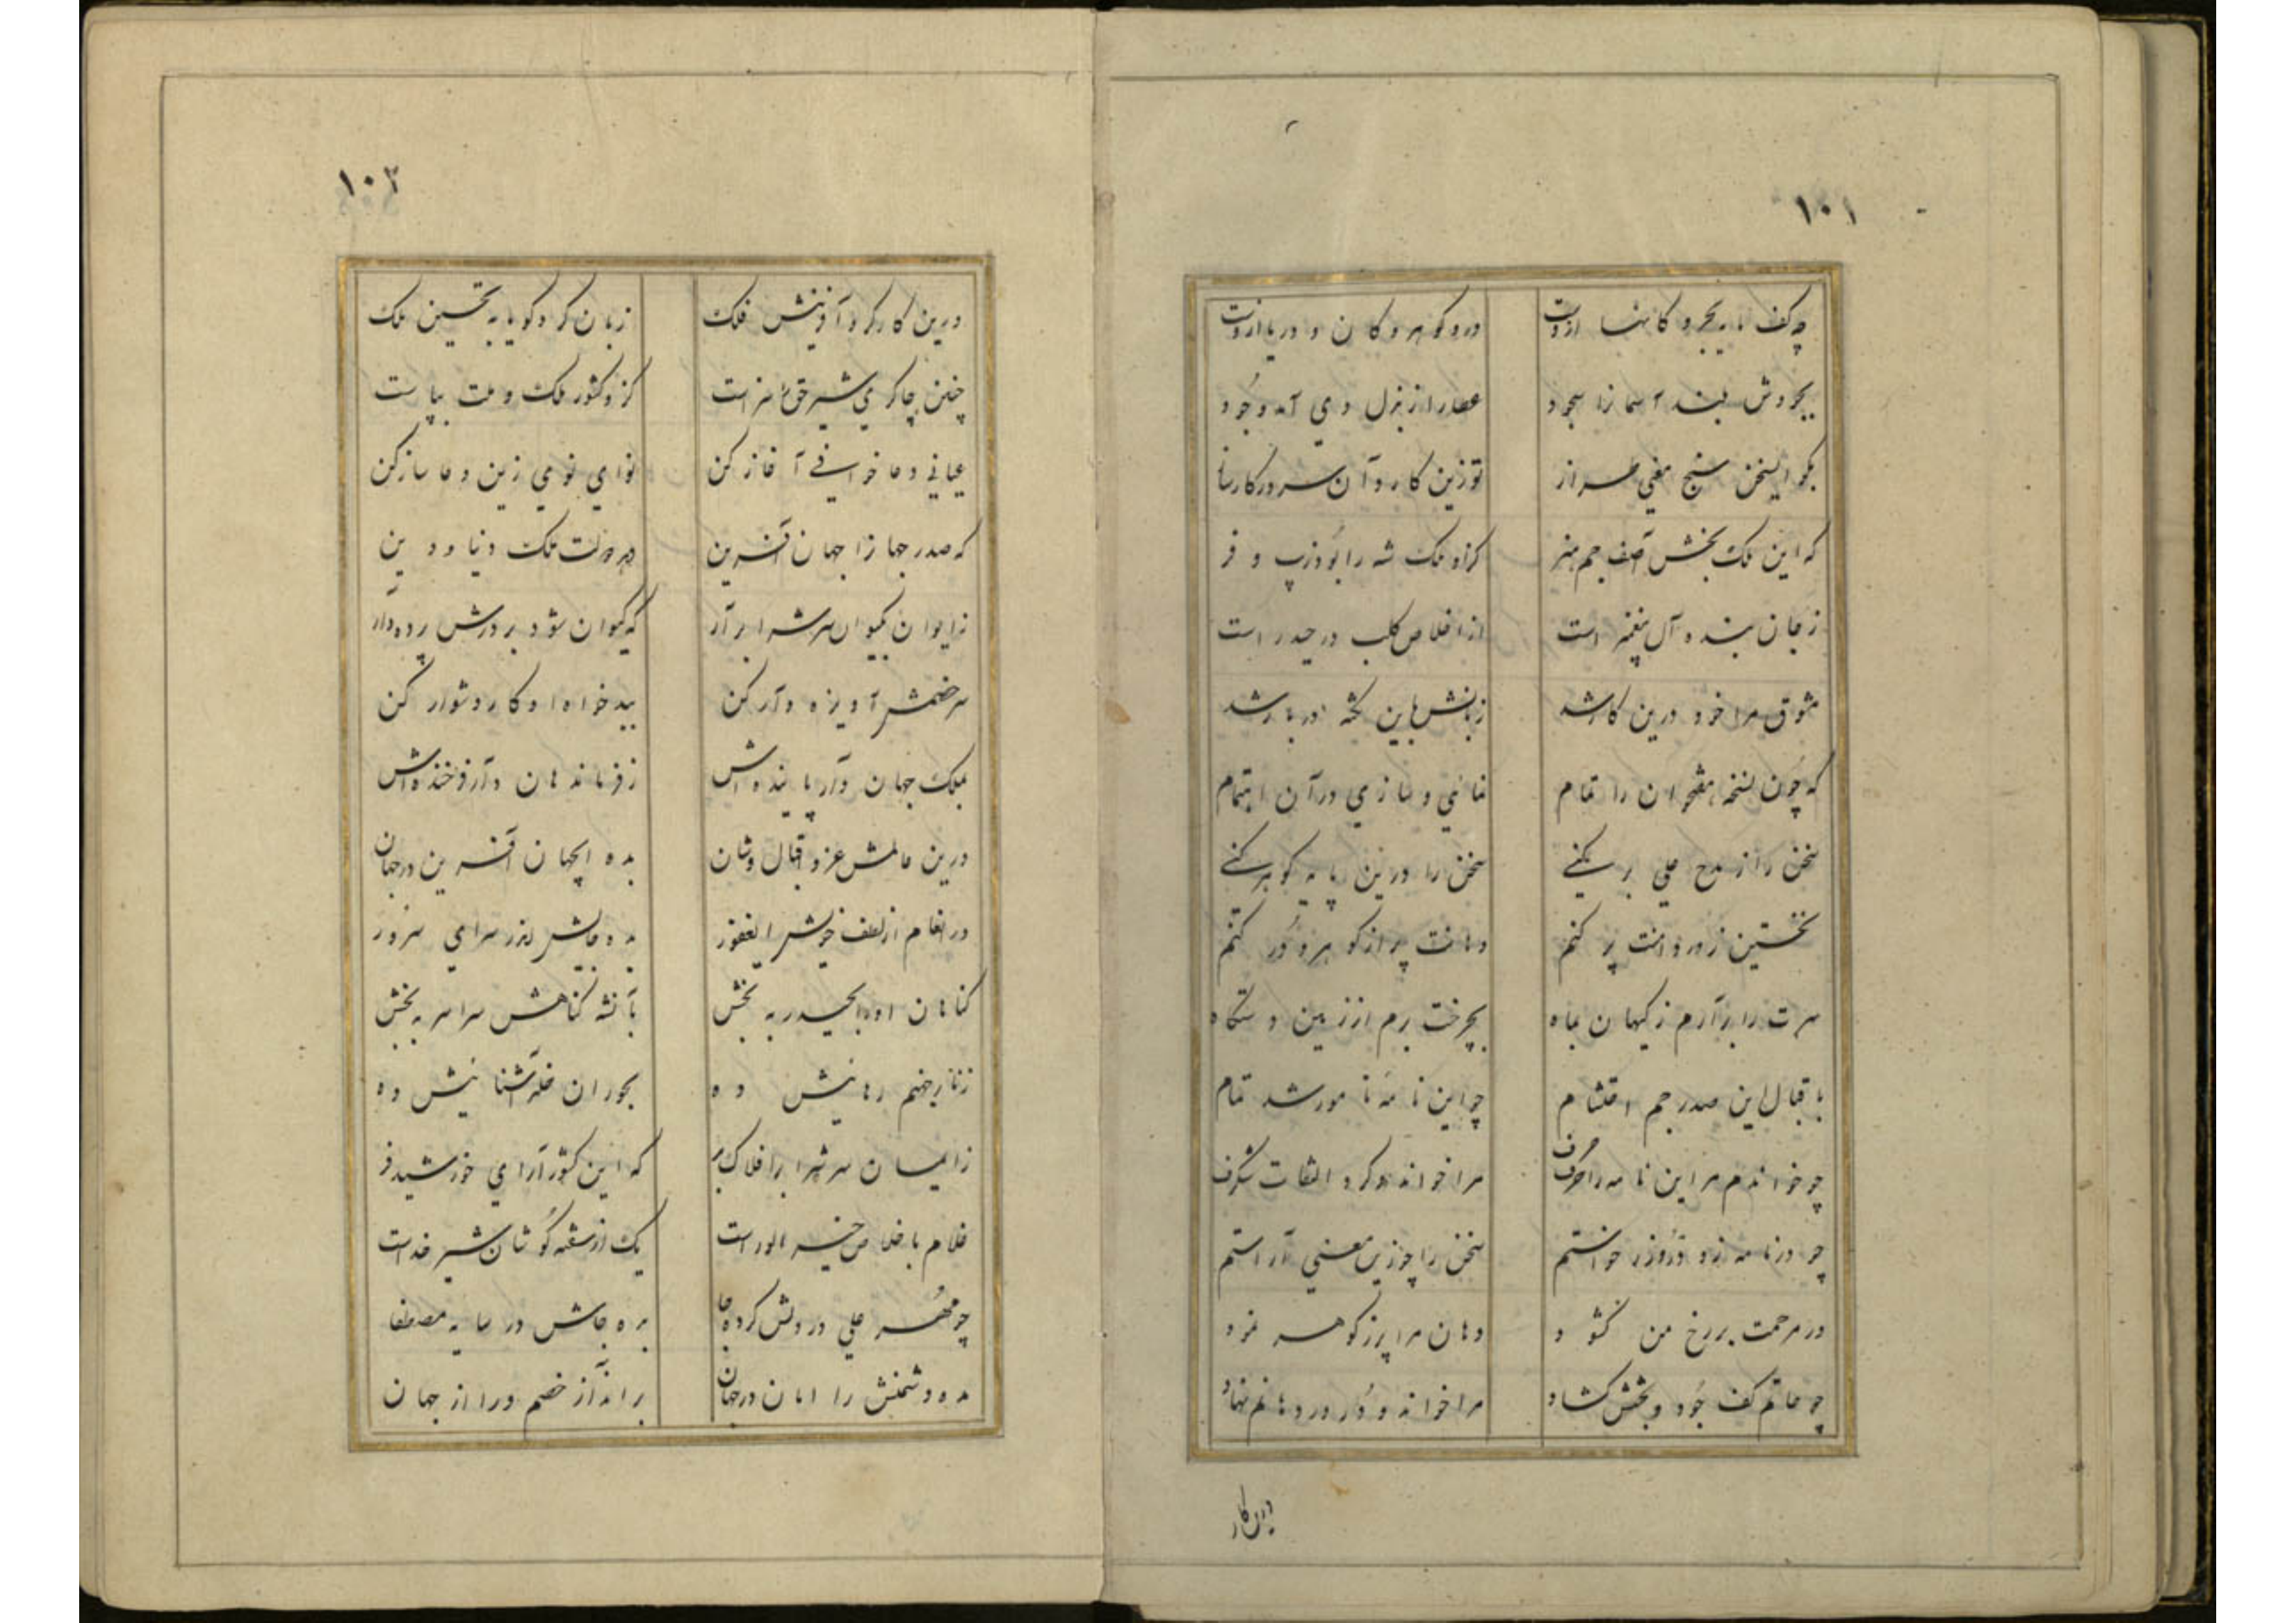 ۱۰۱
چه کف مایه بحر و کانها ازوست درو گوهر و کان و دریا ازوست
بجودش بلند آسمان را سجود عطا را ز بذل وی آمد وجود
بگو ای سخن سنج معنی طراز تو زین کار و آن سرور کارساز
که این ملک بخش آصف جم هنر کزو ملک شه را بود زیب و فر
ز جان بنده آل پیغمبر است از اخلاص کلب در حیدر است
مشوق مرا خود درین کار شد زبانش باین نکته دربار شد
که چون نسخه مفخران را تمام نمائی و سازی در آن اهتمام
سخن را ز مدح علی بر کنی سخن را درین پایه گوهر کنی
نخستین ز زر دامنت پر کنم دهانت پر از گوهر و در کنم
سرت را برآرم ز کیهان بماه بچرخت برم از زمین دستگاه
باقبال این صدر جم احتشام چو این نامه نامور شد تمام
چو خواندم مر این نامه را حرف حرف مرا خواند و کرد التفات شگرف
چو در نامه زو در و زر خواستم سخن را چو زین معنی آراستم
در مرحمت بر رخ من گشود دهان مرا پر ز گوهر نمود
چو حاتم کف جود و بخشش گشاد مرا خواند و در در دهانم نهاد
درین کار
۱۰۲
درین کار کرد آفرینش فلک زبان کرد گویا به تحسین ملک
چنین چاکری شیر حق را سزاست کزو کشور ملک و ملت بپاست
عیانی دعا خوانی آغاز کن نوای نوی زین دعا ساز کن
که صدر جهان را جهان آفرین دهد دولت ملک دنیا و دین
ز ایوان کیوان سرش را برآر که کیوان شود بر درش پرده‌دار
سر خصمش آویزه دار کن ببدخواه او کار دشوار کن
بملک جهان دار پاینده‌اش ز فرماندهان دار فرخنده‌اش
درین عالمش عز و اقبال و شان بده ای جهان آفرین در جهان
در انعام از لطف خویش ای غفور بده جایش اندر سرای سرور
گناهان او را بحیدر به بخش بآن شه گناهش سراسر به بخش
ز نار جهنم رهائیش ده بحوران خلد آشنائیش ده
ز ایمان سرش را بر افلاک بر که این کشور آرای خورشید فر
غلام باخلاص خیر الوراست یک از شقه گوشان شیر خداست
چو مهر علی در دلش کرده جا بده جاش در سایه مصطفا
مده دشمنش را امان در جهان برانداز خصم ورا از جهان